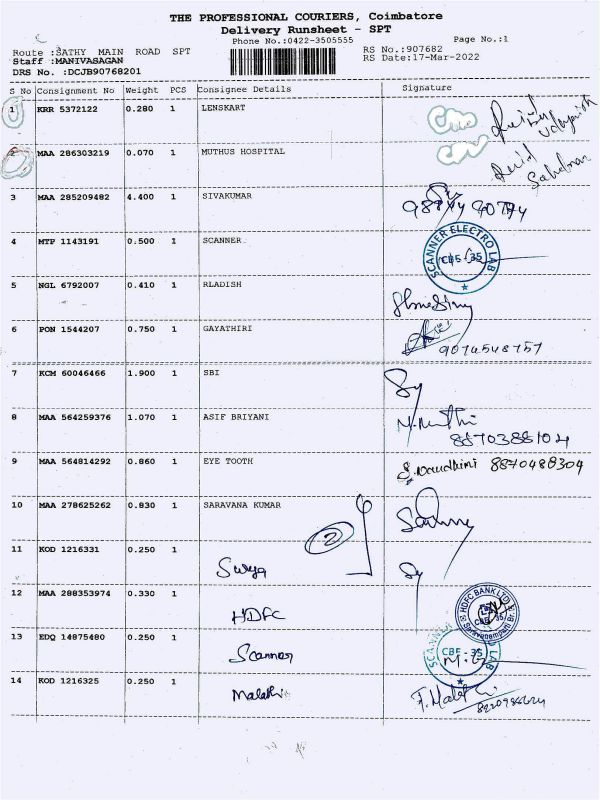 THE PROFESSIONAL COURIERS, Coimbatore
Delivery Runsheet - SPT
Phone No.:0422-3505555 Page No.:1
Route :SATHY MAIN ROAD SPT RS No.:907682
Staff :MANIVASAGAN RS Date:17-Mar-2022
DRS No. :DCJB90768201
S No Consignment No Weight PCS Consignee Details Signature
1 KRR 5372122 0.280 1 LENSKART
2 MAA 286303219 0.070 1 MUTHUS HOSPITAL
3 MAA 285209482 4.400 1 SIVAKUMAR
4 MTP 1143191 0.500 1 SCANNER SCANNER ELECTRO LAB CBE-35
5 NGL 6792007 0.410 1 RLADISH
6 PON 1544207 0.750 1 GAYATHIRI 9074548757
7 KCM 60046466 1.900 1 SBI
8 MAA 564259376 1.070 1 ASIF BRIYANI
9 MAA 564814292 0.860 1 EYE TOOTH 8870488304
10 MAA 278625262 0.830 1 SARAVANA KUMAR
2
11 KOD 1216331 0.250 1 Surya
12 MAA 288353974 0.330 1 HDFC HDFC BANK LTD
13 EDQ 14875480 0.250 1 Scanner SCANNER LAB CBE-35
14 KOD 1216325 0.250 1 Malathi